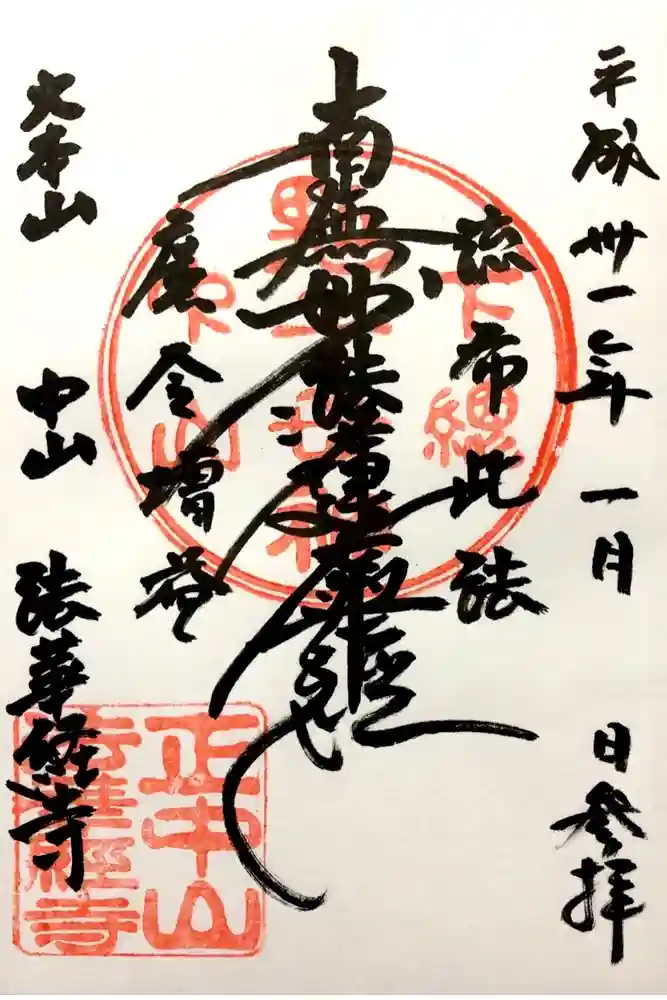 平成卅一年 一月 日参拝
流布此法
南無妙法蓮華経
廣令増益
大本山 中山 法華経寺
下總
中山
正中山
法華經寺